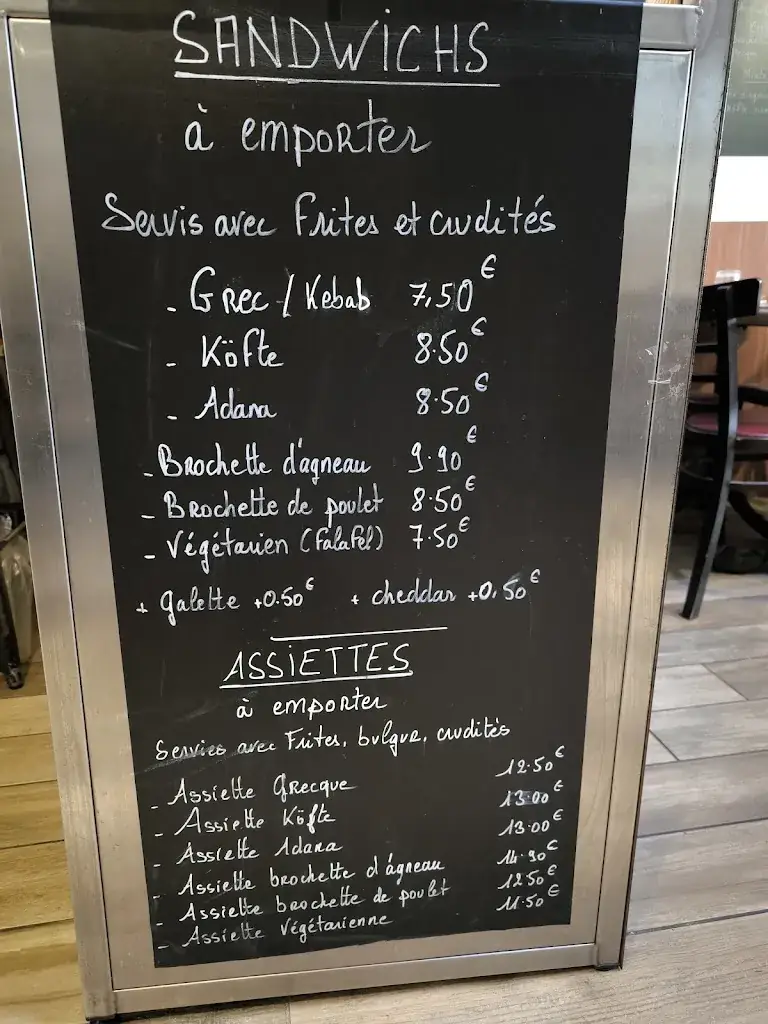 SANDWICHS
à emporter
Servis avec Frites et crudités
- Grec / Kebab 7,50€
- Köfte 8.50€
- Adana 8.50€
- Brochette d'agneau 9.90€
- Brochette de poulet 8.50€
- Végétarien (Falafel) 7.50€
+ galette +0.50€ + cheddar +0,50€
ASSIETTES
à emporter
Servies avec Frites, bulgur, crudités
- Assiette Grecque 12.50€
- Assiette Köfte 13.00€
- Assiette Adana 13.00€
- Assiette brochette d'agneau 14.90€
- Assiette brochette de poulet 12.50€
- Assiette Végétarienne 11.50€